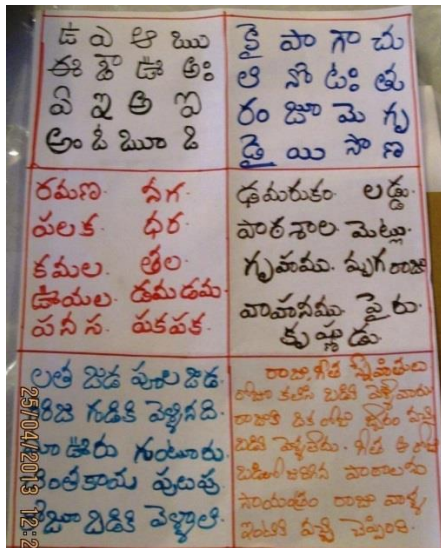 ఉ ఎ ఆ ఋ
ఈ ఔ ఊ అః
ఏ ఇ అ ఐ
అం ఓ ౠ ఒ
కై పా గా చు
ఆ నో టః తు
రం జూ మె గృ
డై యి సౌ ణ
రమణ. నగ.
పలక. ధర.
కమల. తల.
ఊయల. డమడమ.
పనస. పకపక.
ఢమరుకం. లడ్డు.
పాఠశాల. మెట్లు.
గృహము. మృగరాజు
వాహనము. పైరు.
కృష్ణుడు.
లత జడ పూల జడ.
గిరిజ గుడికి వెళ్ళినది.
మా ఊరు గుంటూరు.
చింతకాయ పులుపు.
రోజూ బడికి వెళ్ళాలి.
రాజు, గీత స్నేహితులు
రోజూ కలిసి బడికి వెళ్ళేవారు.
రాజుకి ఒక రోజు జ్వరం వచ్చి
బడికి వెళ్ళలేదు. గీత ఆ రోజు
బడిలో జరిగిన పాఠాలను
సాయంత్రం రాజు వాళ్ళ
ఇంటికి వచ్చి చెప్పింది.
25/04/2013 12:2